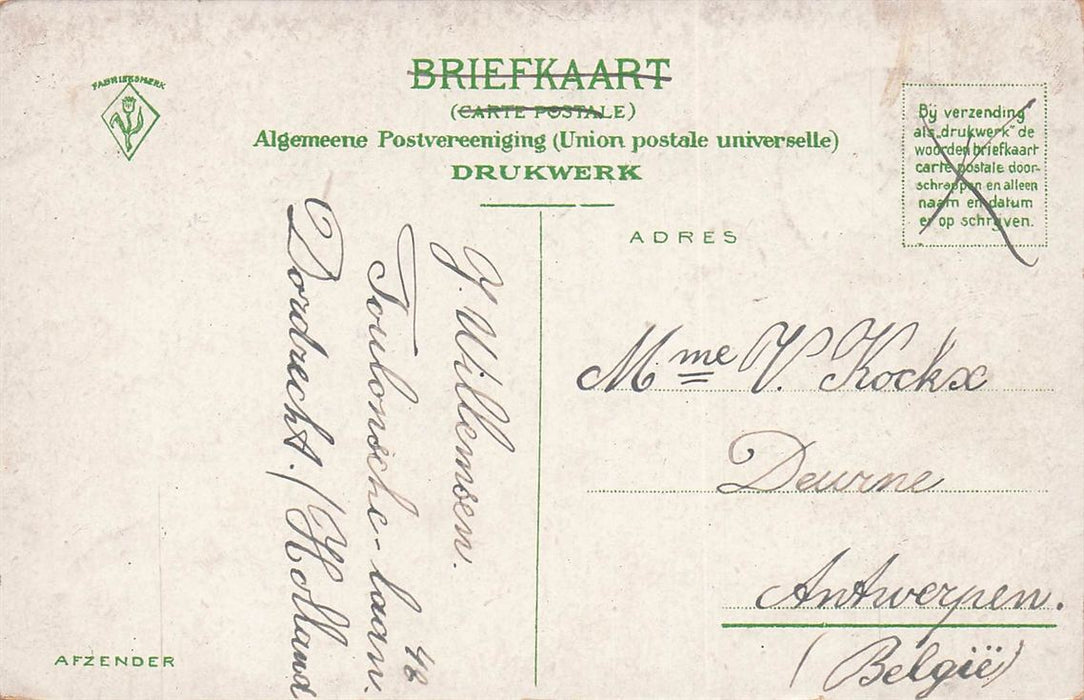 FABRIEKSMERK
BRIEFKAART
(CARTE POSTALE)
Algemeene Postvereeniging (Union postale universelle)
DRUKWERK
Bij verzending
als „drukwerk" de
woorden briefkaart
carte postale door-
schrappen en alleen
naam en datum
er op schrijven.
ADRES
J. Willemsen.
Toulonsche-laan. 46
Dordrecht. (Holland
Mme V. Kockx
Deurne
Antwerpen.
(België)
AFZENDER